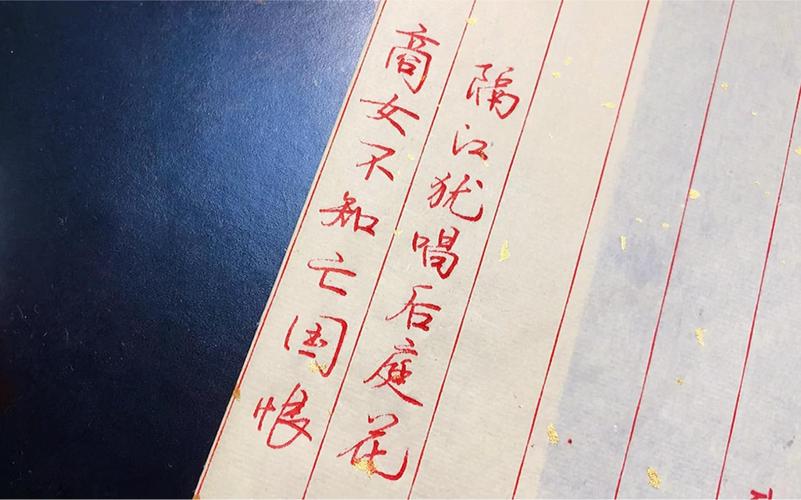 商女不知亡国恨
隔江犹唱后庭花